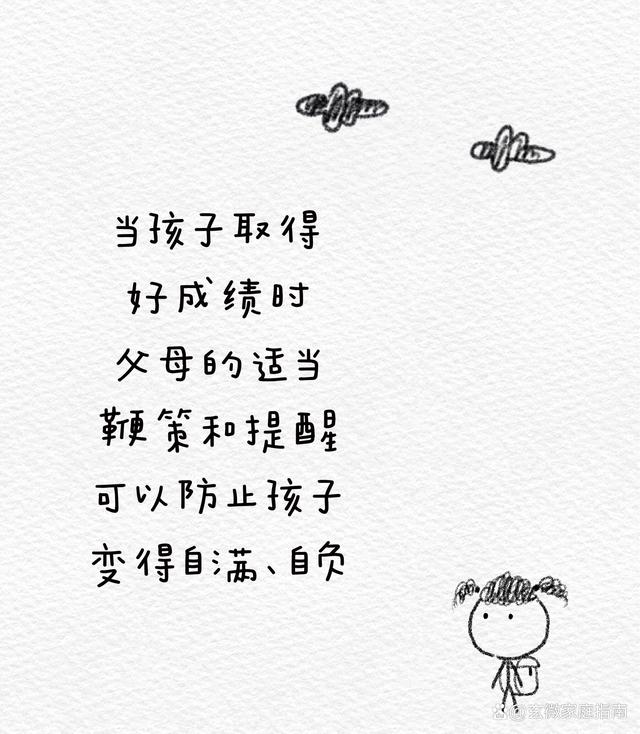 当孩子取得
好成绩时
父母的适当
鞭策和提醒
可以防止孩子
变得自满、自负
@玄微家庭指南